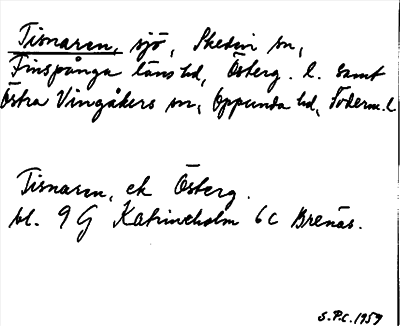 Tisnaren, sjö, Skedvi sn,
Finspånga läns hd, Österg. l. samt
Östra Vingåkers sn, Oppunda hd, Söderm. l
Tisnaren, ek Österg.
bl. 9 G Katrineholm 6 c Brenäs.
S.P.C. 1959